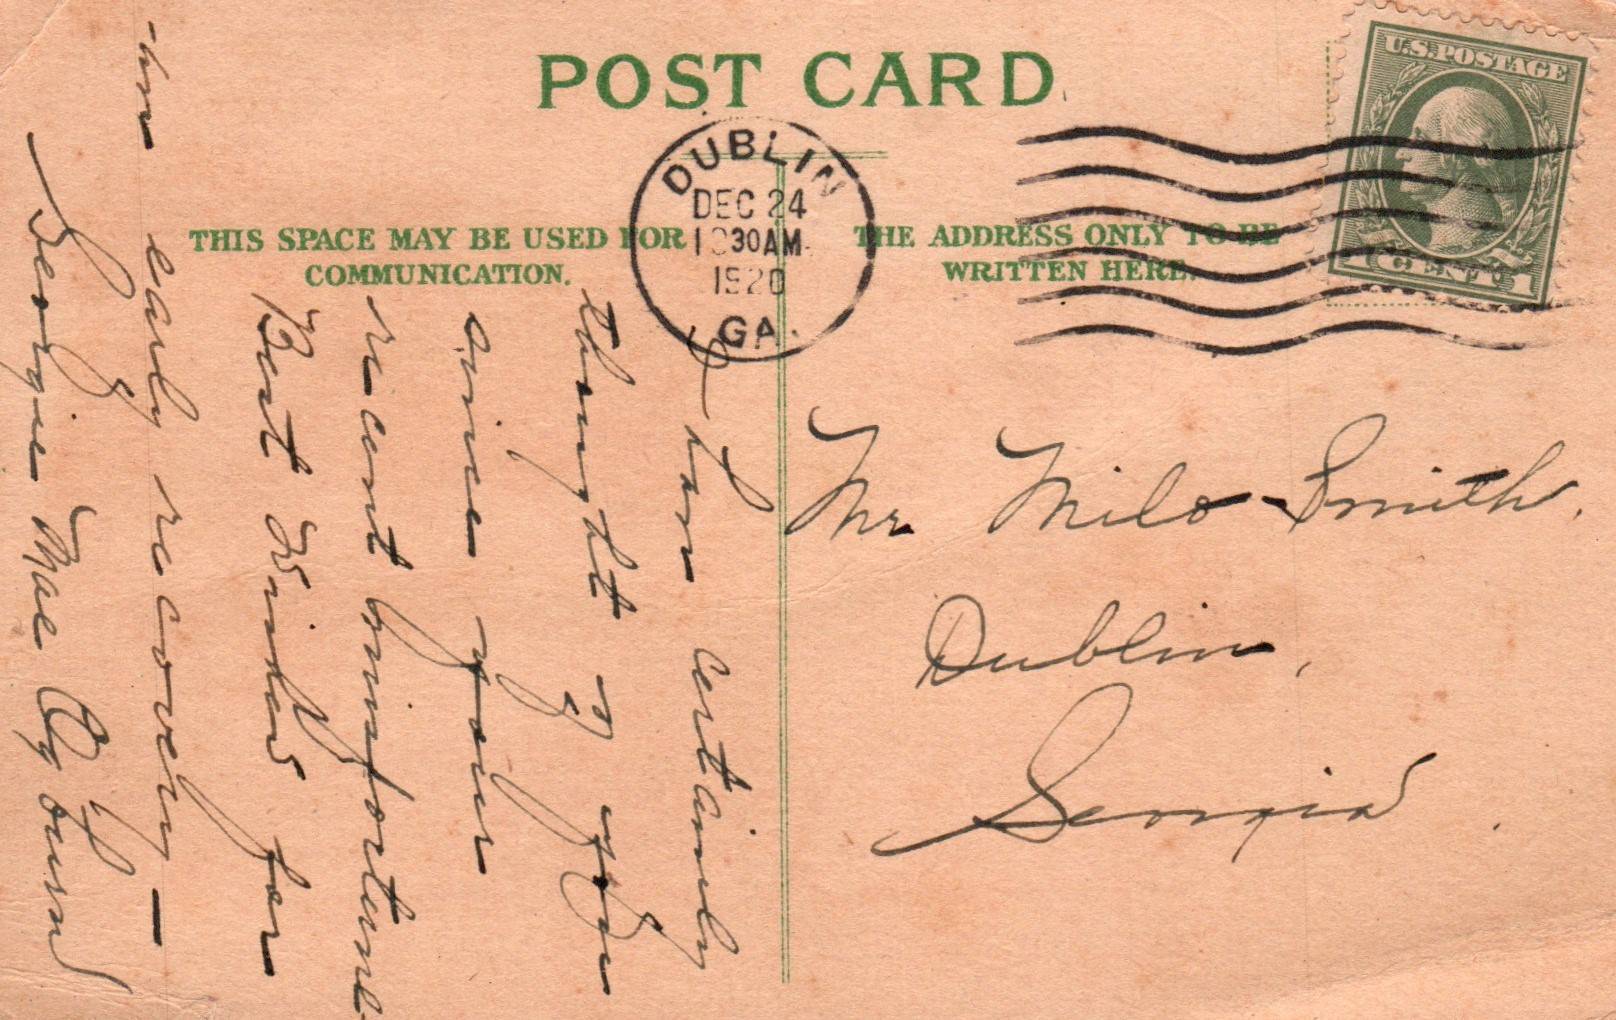 POST CARD
THIS SPACE MAY BE USED FOR
COMMUNICATION.
THE ADDRESS ONLY TO BE
WRITTEN HERE.
U.S. POSTAGE
1 CENT 1
DUBLIN
DEC 24
30 AM
1920
GA.
Mr Milo Smith.
Dublin,
Georgia
I have certainly
thought of you
since your
recent misfortune
Best Wishes for
an early recovery -
Georgie Mae